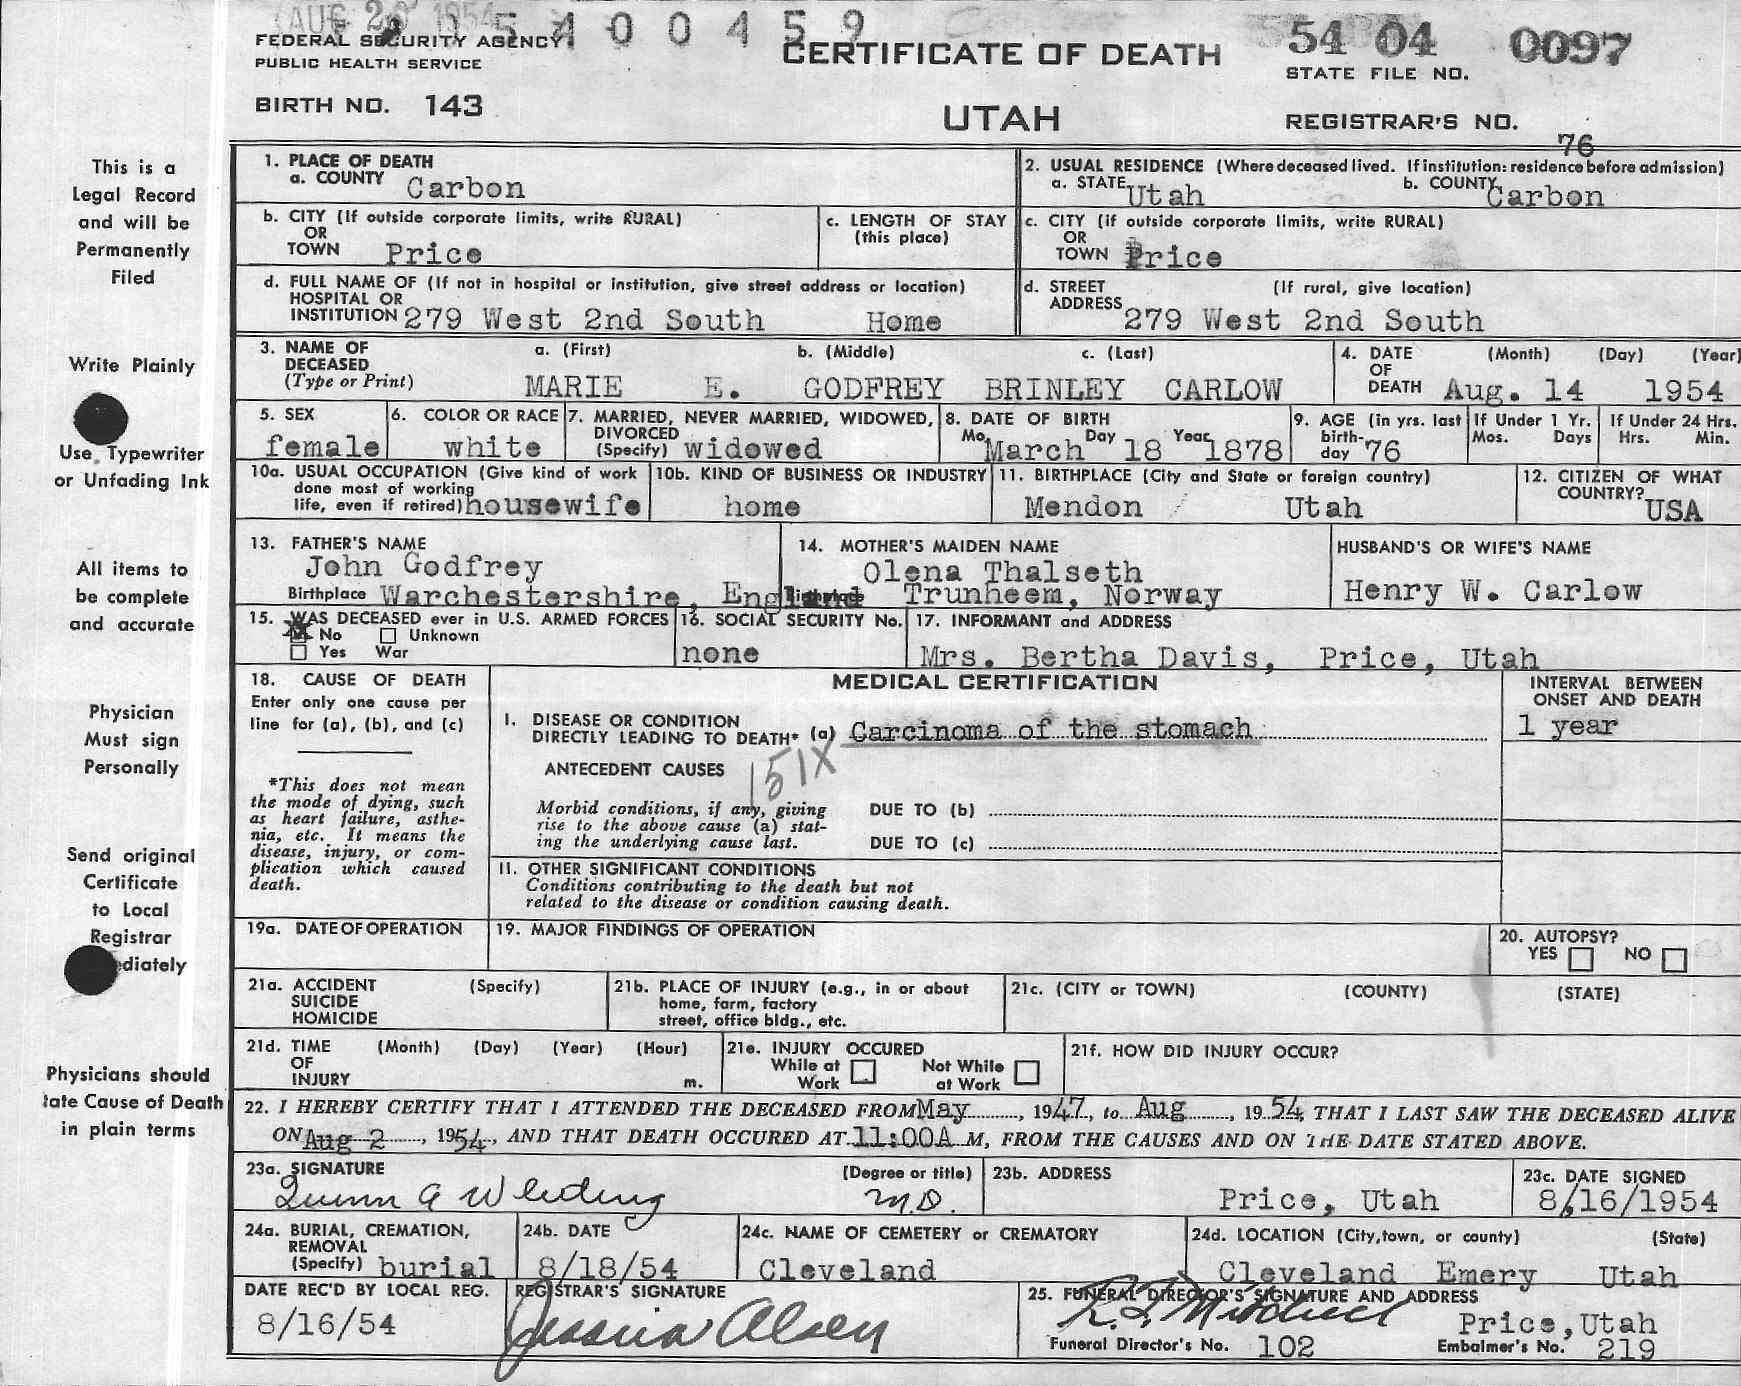 AUG 20 1954
0 5 4 0 0 4 5 9
54 04 0097
FEDERAL SECURITY AGENCY
PUBLIC HEALTH SERVICE
CERTIFICATE OF DEATH
STATE FILE NO.
BIRTH NO. 143
UTAH
REGISTRAR'S NO. 76
This is a
Legal Record
and will be
Permanently
Filed
Write Plainly
Use Typewriter
or Unfading Ink
All items to
be complete
and accurate
Physician
Must sign
Personally
Send original
Certificate
to Local
Registrar
ediately
Physicians should
tate Cause of Death
in plain terms
1. PLACE OF DEATH
a. COUNTY Carbon
2. USUAL RESIDENCE (Where deceased lived. If institution: residence before admission)
a. STATE Utah b. COUNTY Carbon
b. CITY (If outside corporate limits, write RURAL)
OR
TOWN Price
c. LENGTH OF STAY
(this place)
c. CITY (if outside corporate limits, write RURAL)
OR
TOWN Price
d. FULL NAME OF (If not in hospital or institution, give street address or location)
HOSPITAL OR
INSTITUTION 279 West 2nd South Home
d. STREET (If rural, give location)
ADDRESS 279 West 2nd South
3. NAME OF a. (First) b. (Middle) c. (Last)
DECEASED
(Type or Print) MARIE E. GODFREY BRINLEY CARLOW
4. DATE (Month) (Day) (Year)
OF
DEATH Aug. 14 1954
5. SEX
female
6. COLOR OR RACE
white
7. MARRIED, NEVER MARRIED, WIDOWED,
DIVORCED
(Specify) widowed
8. DATE OF BIRTH
Mo. March Day 18 Year 1878
9. AGE (in yrs. last
birth-
day 76
If Under 1 Yr.
Mos. Days
If Under 24 Hrs.
Hrs. Min.
10a. USUAL OCCUPATION (Give kind of work
done most of working
life, even if retired) housewife
10b. KIND OF BUSINESS OR INDUSTRY
home
11. BIRTHPLACE (City and State or foreign country)
Mendon Utah
12. CITIZEN OF WHAT
COUNTRY? USA
13. FATHER'S NAME
John Godfrey
Birthplace Warchestershire, England
14. MOTHER'S MAIDEN NAME
Olena Thalseth
Birthplace Trunheem, Norway
HUSBAND'S OR WIFE'S NAME
Henry W. Carlow
15. WAS DECEASED ever in U.S. ARMED FORCES
No Unknown
Yes War
16. SOCIAL SECURITY No.
none
17. INFORMANT and ADDRESS
Mrs. Bertha Davis, Price, Utah
18. CAUSE OF DEATH
Enter only one cause per
line for (a), (b), and (c)
*This does not mean
the mode of dying, such
as heart failure, asthe-
nia, etc. It means the
disease, injury, or com-
plication which caused
death.
MEDICAL CERTIFICATION
INTERVAL BETWEEN
ONSET AND DEATH
I. DISEASE OR CONDITION
DIRECTLY LEADING TO DEATH* (a) Carcinoma of the stomach
1 year
151X
ANTECEDENT CAUSES
Morbid conditions, if any, giving
rise to the above cause (a) stat-
ing the underlying cause last.
DUE TO (b)
DUE TO (c)
II. OTHER SIGNIFICANT CONDITIONS
Conditions contributing to the death but not
related to the disease or condition causing death.
19a. DATE OF OPERATION
19. MAJOR FINDINGS OF OPERATION
20. AUTOPSY?
YES NO
21a. ACCIDENT (Specify)
SUICIDE
HOMICIDE
21b. PLACE OF INJURY (e.g., in or about
home, farm, factory
street, office bldg., etc.
21c. (CITY or TOWN) (COUNTY) (STATE)
21d. TIME (Month) (Day) (Year) (Hour)
OF
INJURY m.
21e. INJURY OCCURED
While at Work Not While at Work
21f. HOW DID INJURY OCCUR?
22. I HEREBY CERTIFY THAT I ATTENDED THE DECEASED FROM May, 1947, to Aug, 1954, THAT I LAST SAW THE DECEASED ALIVE
ON Aug 2, 1954, AND THAT DEATH OCCURED AT 11:00A M, FROM THE CAUSES AND ON THE DATE STATED ABOVE.
23a. SIGNATURE (Degree or title)
Quinn A Whiting M.D.
23b. ADDRESS
Price, Utah
23c. DATE SIGNED
8/16/1954
24a. BURIAL, CREMATION,
REMOVAL
(Specify) burial
24b. DATE
8/18/54
24c. NAME OF CEMETERY or CREMATORY
Cleveland
24d. LOCATION (City, town, or county) (State)
Cleveland Emery Utah
DATE REC'D BY LOCAL REG.
8/16/54
REGISTRAR'S SIGNATURE
Jessica Olsen
25. FUNERAL DIRECTOR'S SIGNATURE AND ADDRESS
Mitchell
Price, Utah
Funeral Director's No. 102 Embalmer's No. 219